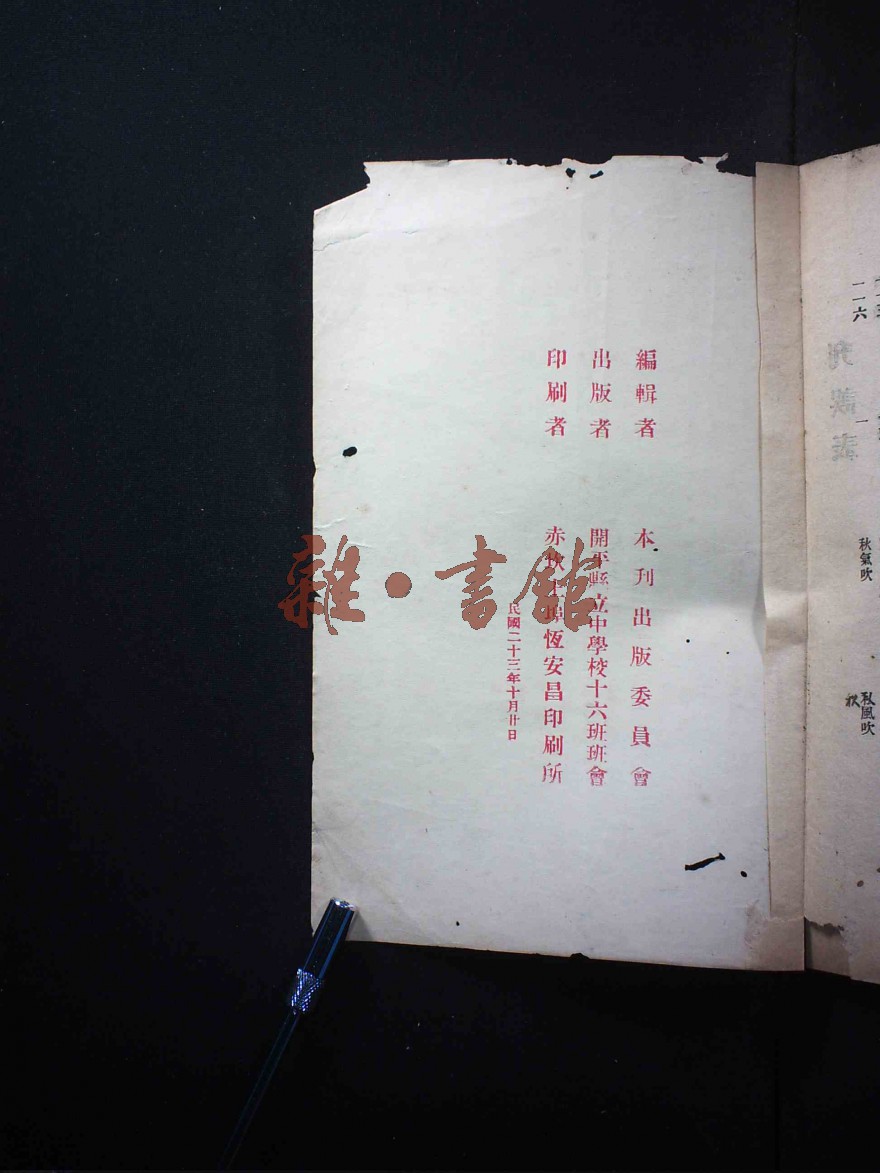 一一六
一
秋氣吹
秋風吹
秋
刊誤表
編輯者 本刊出版委員會
出版者 開平縣立中學校十六班班會
印刷者 赤坎 埠恆安昌印刷所
民國二十三年十月廿日
雜·書館